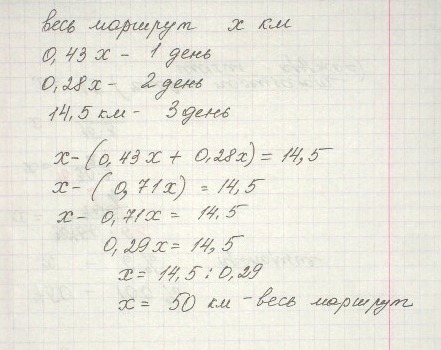 весь маршрут х км
0,43х - 1 день
0,28х - 2 день
14,5 км - 3 день
х-(0,43х + 0,28х) = 14,5
х-(0,71х) = 14,5
х- 0,71х = 14.5
0,29х = 14,5
х= 14,5 : 0,29
х= 50 км - весь маршрут